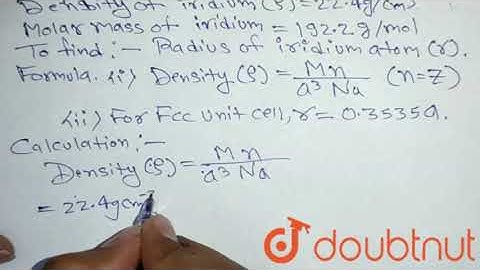 Density of iridium (ρ)=22.4g/cm³
Molar mass of iridium = 192.2g/mol
To find:- Radius of iridium atom (r).
Formula. (i) Density (ρ) = Mn/a³ Na (n=z)
(ii) For Fcc unit cell, r = 0.3535a.
Calculation:-
Density (ρ) = Mn/a³ Na
= 22.4gcm
doubtnut